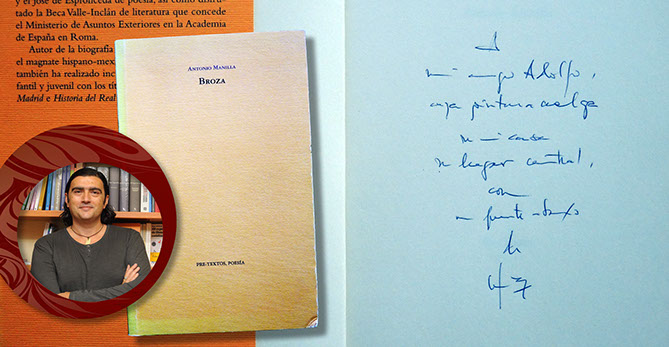 y el José de Espronceda de poesía, así como disfru-
tado la Beca Valle-Inclán de literatura que concede
el Ministerio de Asuntos Exteriores en la Academia
de España en Roma.
Autor de la biografía
el magnate hispano-mex
también ha realizado inc
fantil y juvenil con los tít
Madrid e Historia del Real
ANTONIO MANILLA
BROZA
PRE-TEXTOS, POESÍA
A
mi amigo Adolfo,
cuya pintura cuelga
en mi casa
en lugar central,
con
un fuerte abrazo